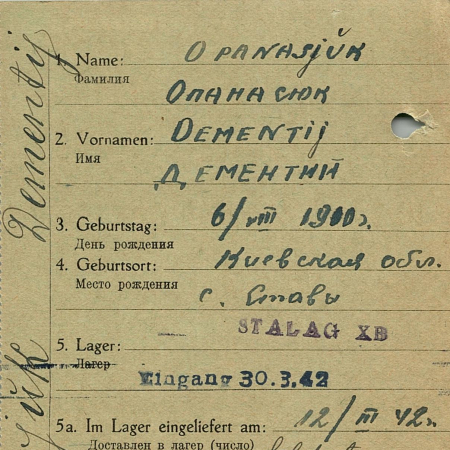 1. Name: OPANASjUK
Фамилия
ОПАНАСЮК
2. Vornamen: DEMENTIJ
Имя
ДЕМЕНТИЙ
3. Geburtstag: 6/VIII 1910г.
День рождения
4. Geburtsort: Киевская обл.
Место рождения
с. Ставы
STALAG XB
5. Lager:
Лагер
Eingang 30.3.42
5a. Im Lager eingeliefert am: 12/III 42г.
Доставлен в лагер (число)
Dementij